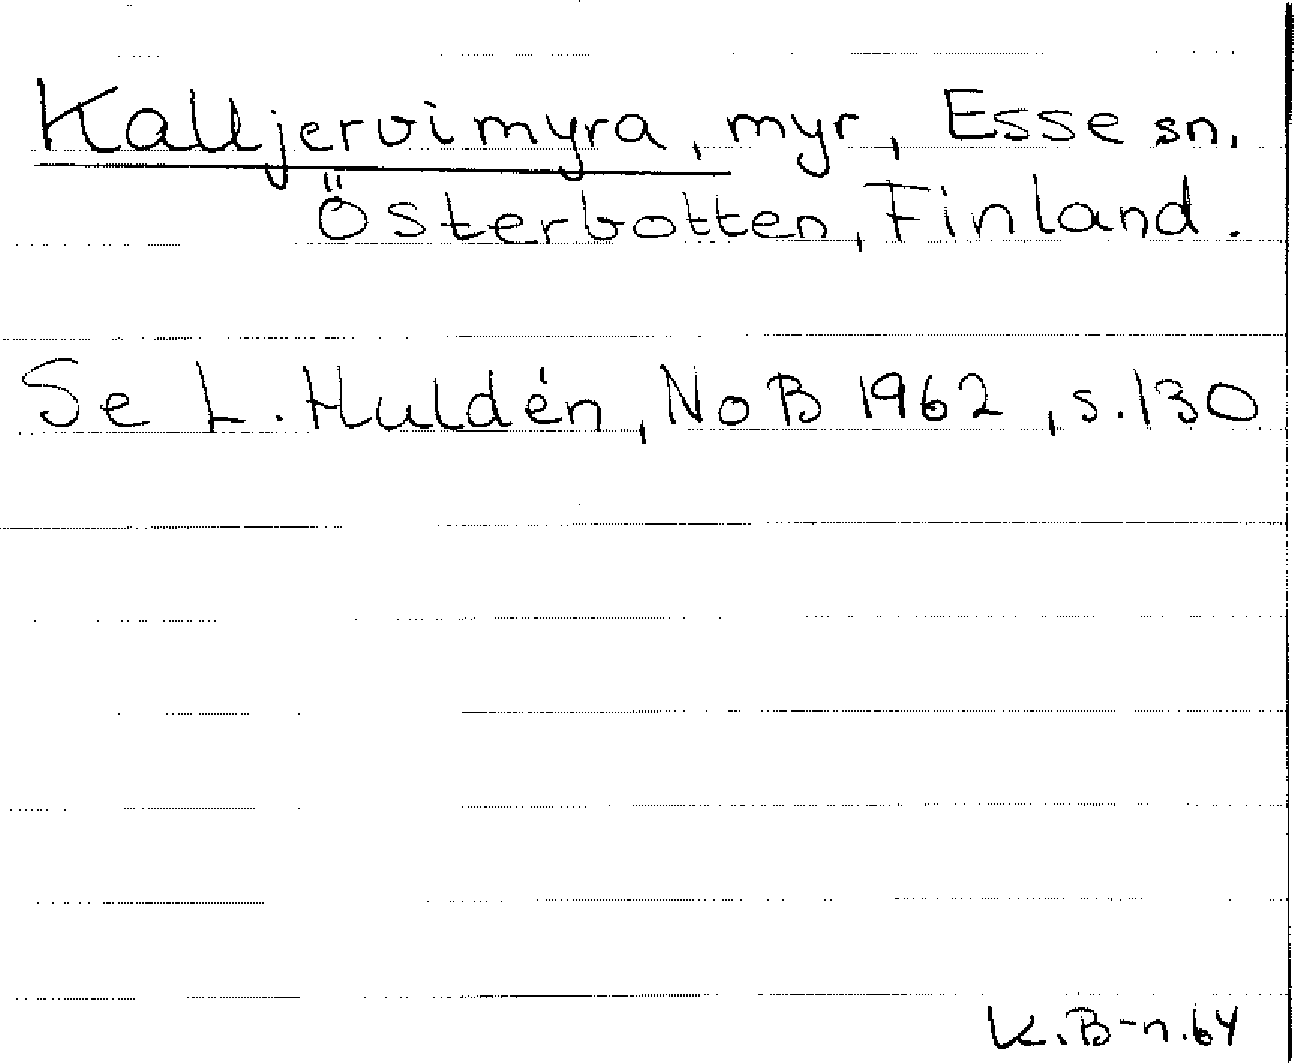 Kalljervimyra, myr, Esse sn.
Österbotten, Finland.
Se L. Huldén, NoB 1962, s. 130
K. B-n. 64